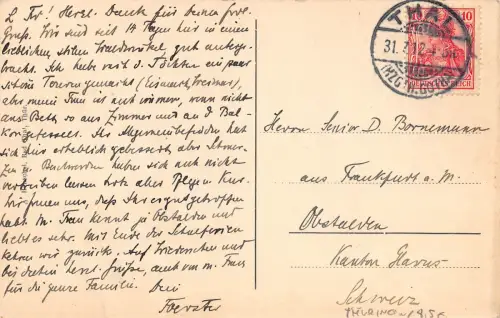 L. Fr! Herzl. Dank für Deinen frdl.
Gruß. Wir sind seit 14 Tagen hier in einem
lieblichen stillen Waldwinkel, gut aufge-
bracht. Ich habe mit d. Töchtern ein paar
schöne Touren gemacht (Eisenach, Weimar),
aber meine Frau ist noch immer, wenn nicht
ans Bett, so ans Zimmer und an d. Bal-
kon gefesselt. Ihr Allgemeinbefinden hat
sich hier erheblich gebessert, aber
Beschwerden haben sich noch nicht
vertreiben lassen trotz aller Pflege.
freuen uns, daß Ihr es gut getroffen
habt. M. Frau kennt ja Obstalden und
liebt es sehr. Mit Ende der Schulferien
kehren wir zurück. Auf Wiedersehen und
herzl. Grüße, auch von m. Frau
für die ganze Familie. Dein
Foerster
DEUTSCHES REICH
10
10
THAL
31. 7. 12. 4-5N
(HZGT. GOTHA)
Herrn Senior D. Bornemann
aus Frankfurt a. M.
Obstalden
Kanton Glarus
Schweiz
THURINGEN